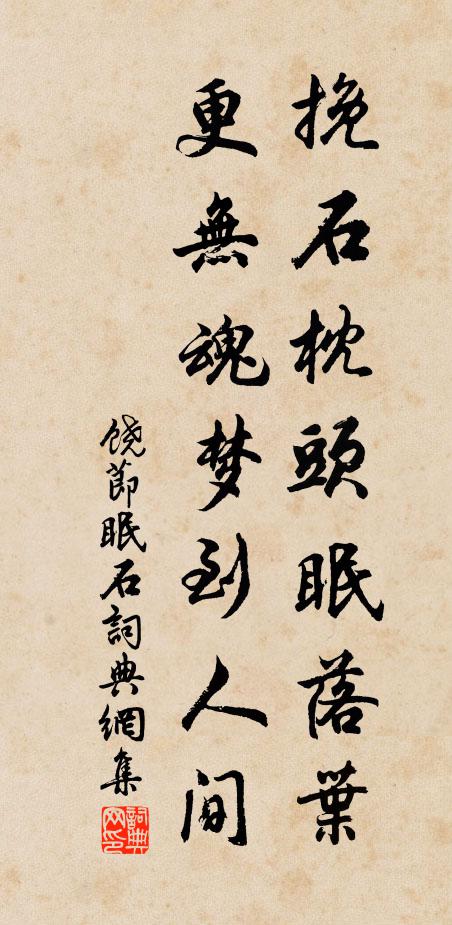 挽石枕頭眠落葉
更無魂梦到人间
饶節眠石詞典網集
詞典网印